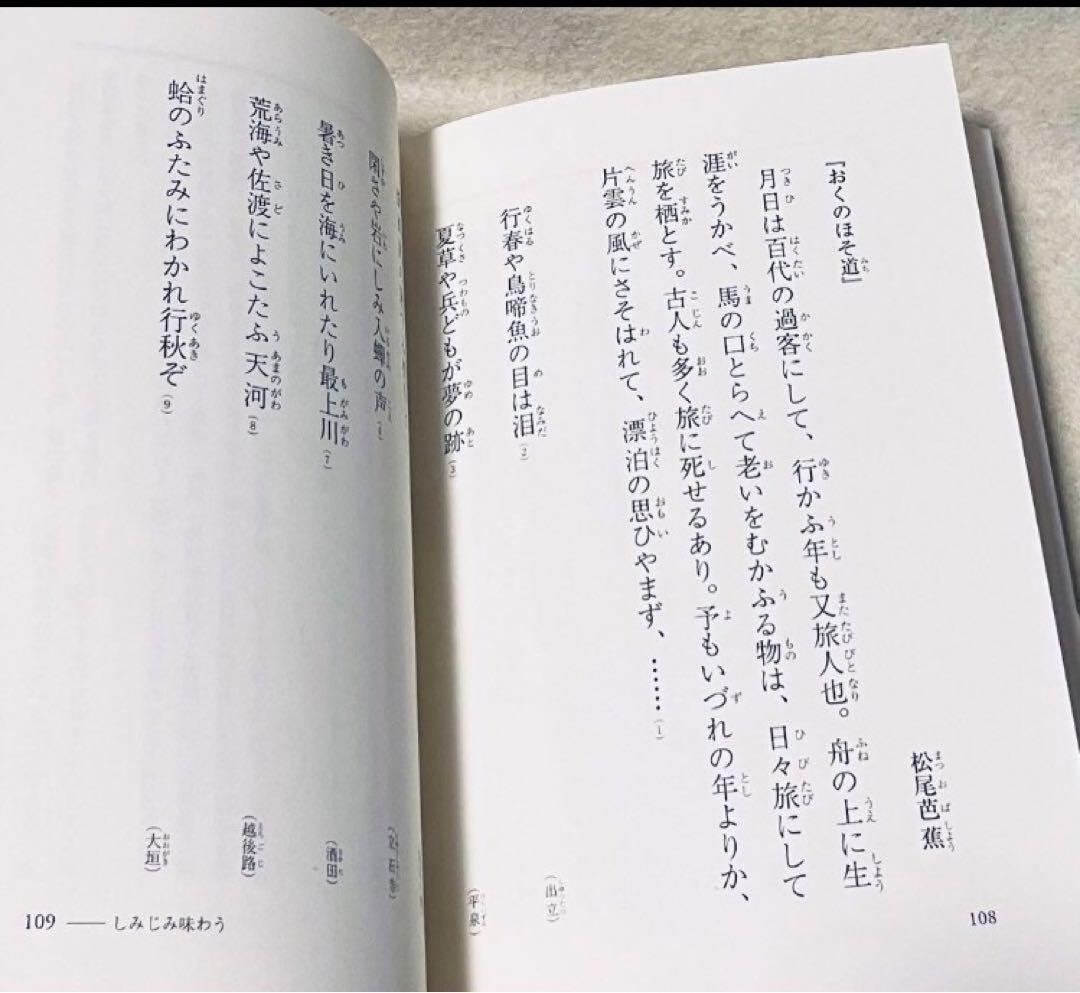 『おくのほそ道』
松尾芭蕉
月日は百代の過客にして、行かふ年も又旅人也。舟の上に生
涯をうかべ、馬の口とらへて老いをむかふる物は、日々旅にして
旅を栖とす。古人も多く旅に死せるあり。予もいづれの年よりか、
片雲の風にさそはれて、漂泊の思ひやまず、……(1)
行春や鳥啼魚の目は泪(2)
(出立)
夏草や兵どもが夢の跡(3)
(平泉)
閑さや岩にしみ入蝉の声
暑き日を海にいれたり最上川(7)
(酒田)
荒海や佐渡によこたふ天河(8)
(越後路)
蛤のふたみにわかれ行秋ぞ(9)
(大垣)
108
109 ── しみじみ味わう